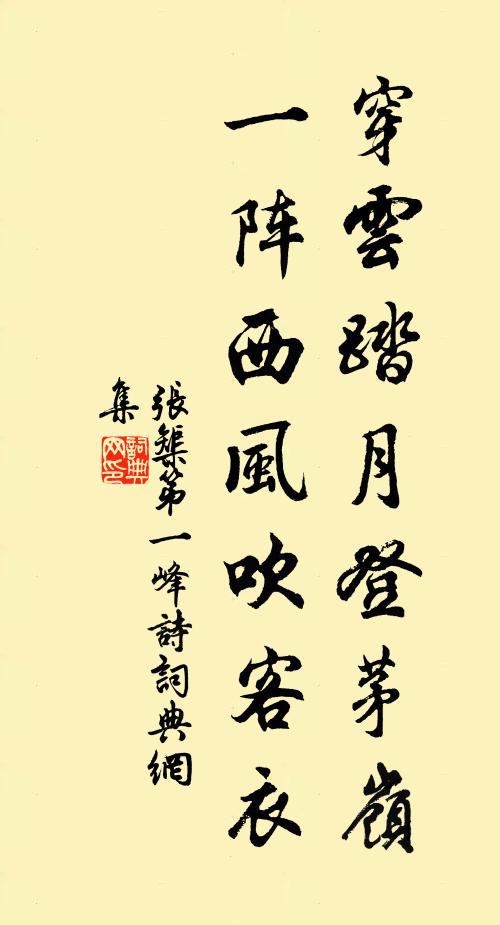 穿雲踏月登茅嶺
一阵西風吹客衣
張榘第一峰詩詞典網
集
詞典網印